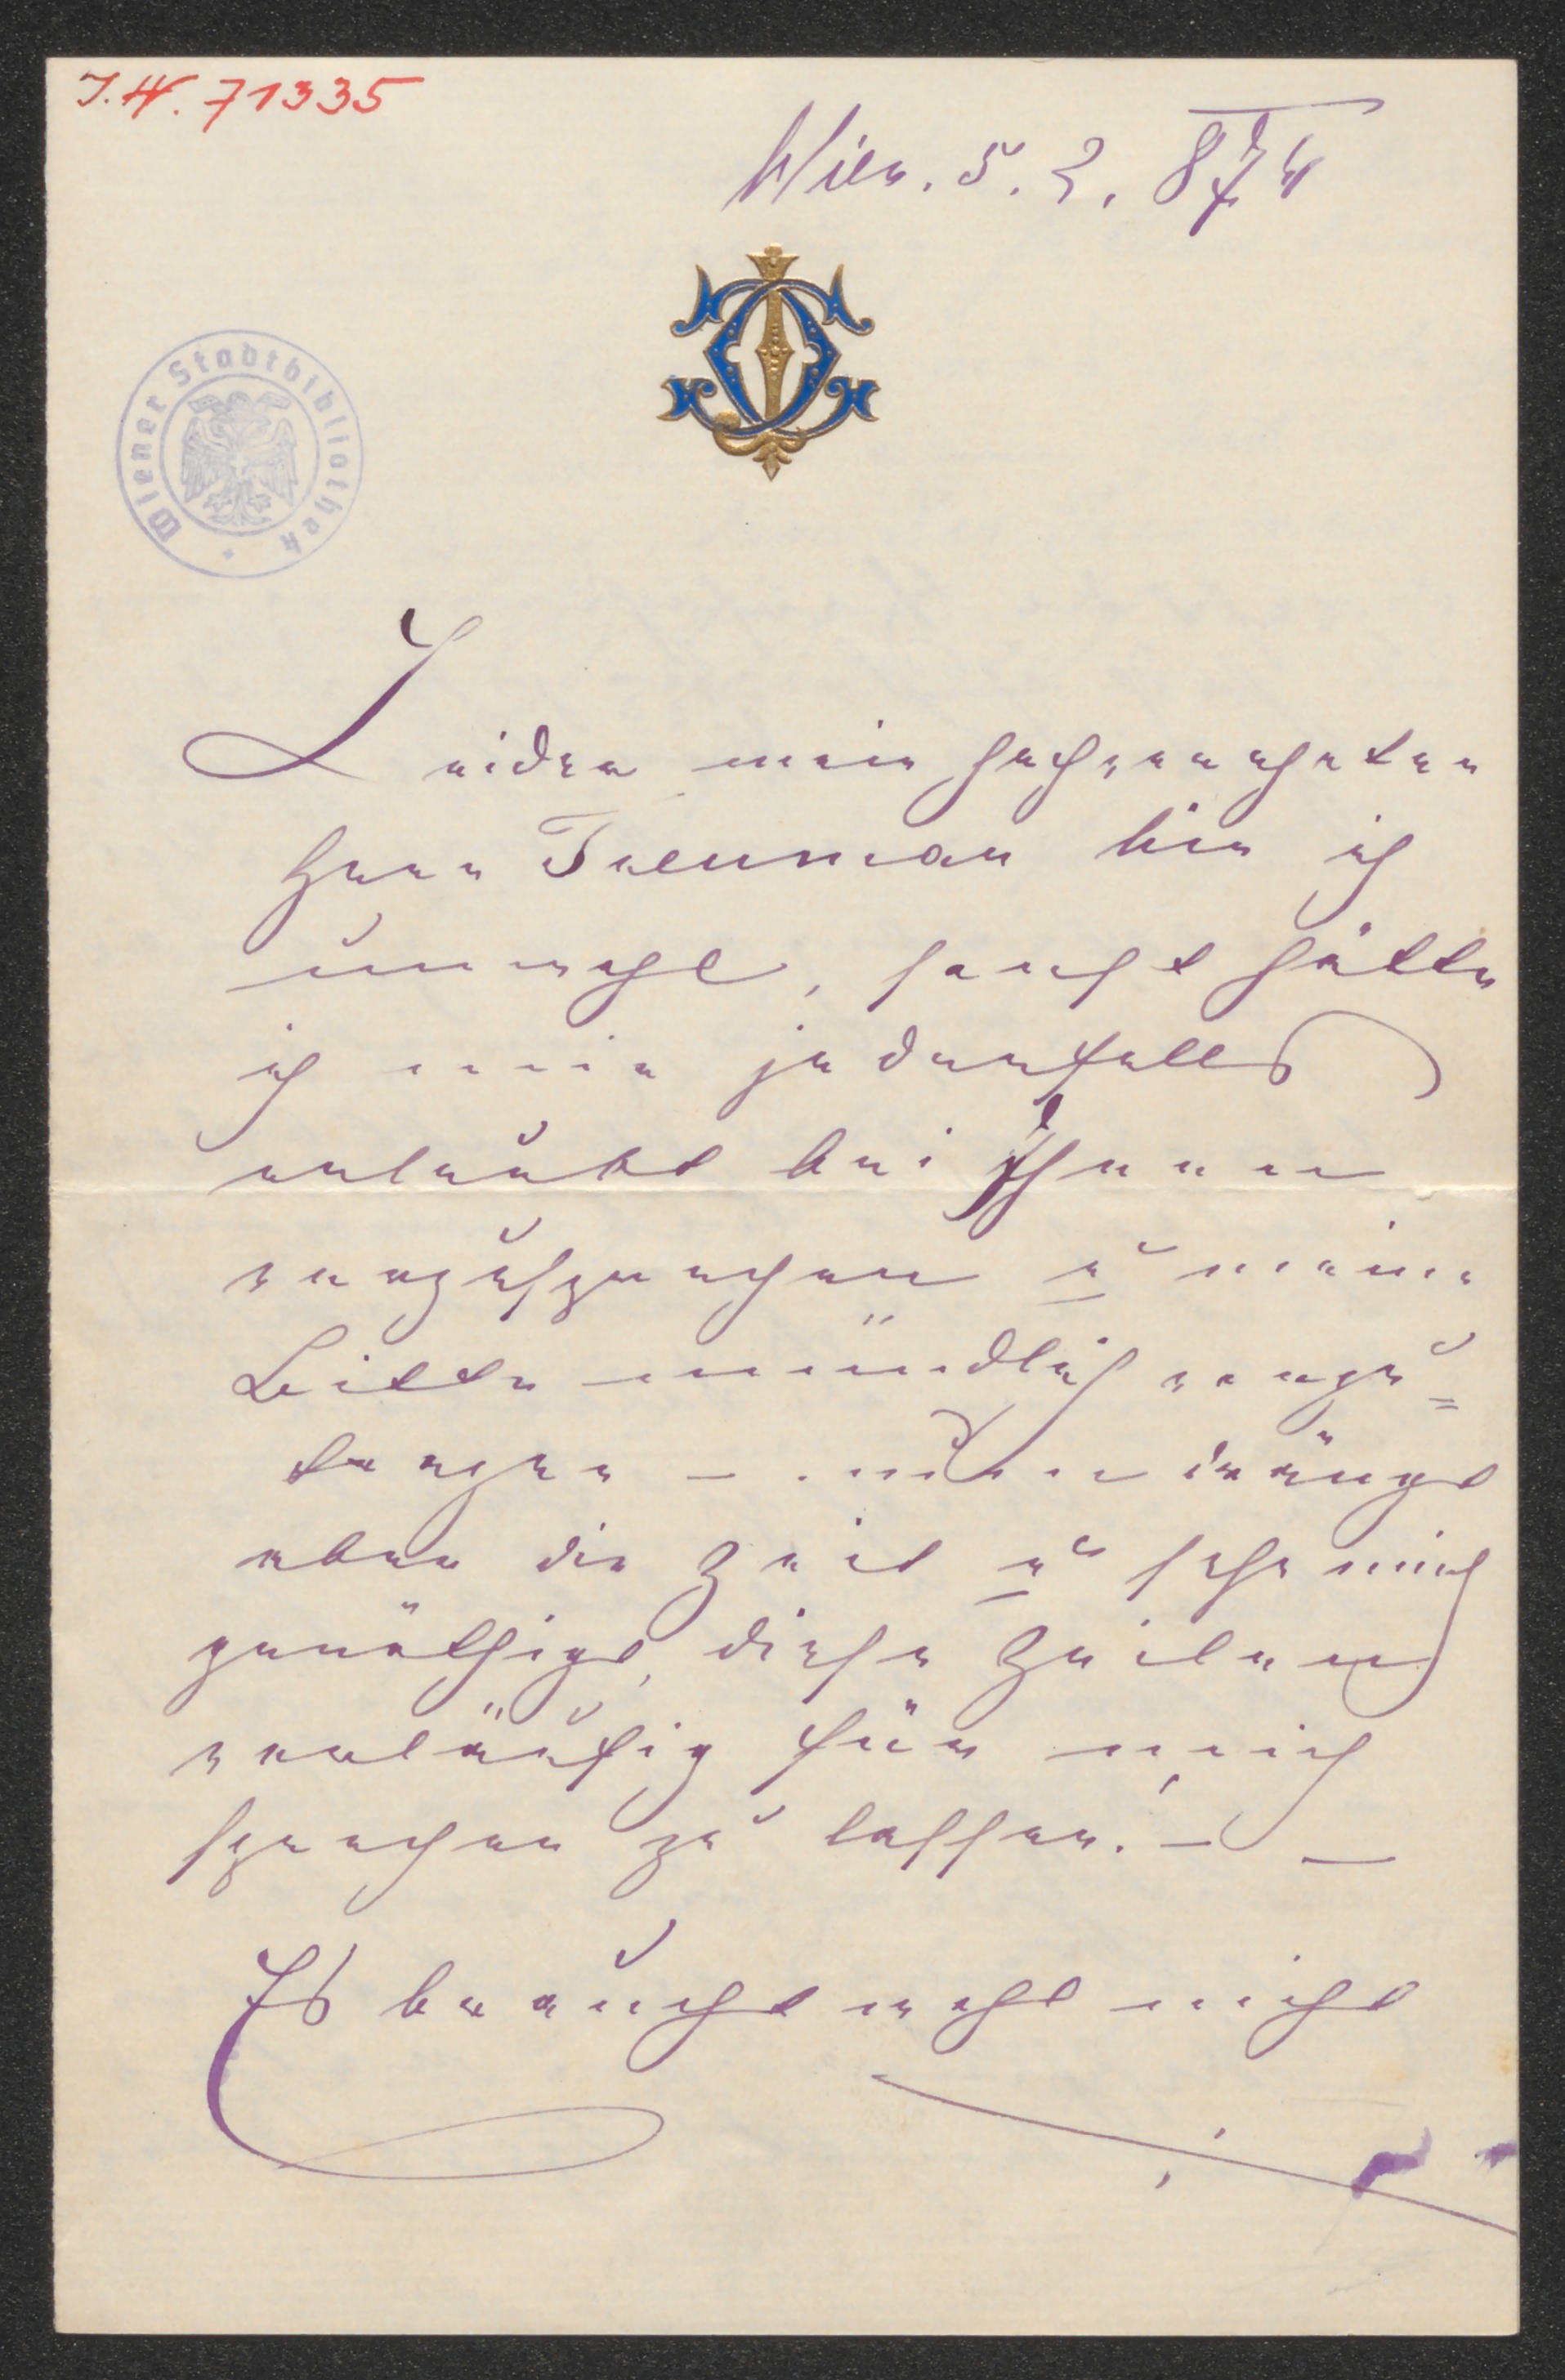 I.N. 71335
Wien. 5. 2. 874
Wiener Stadtbibliothek
Leider mein hochverehrter
Herr Treuman bin ich
unwohl, sonst hätte
ich mir jedenfalls
erlaubt bei Ihnen
vorzusprechen u meine
Bitte mündlich vorzu=
tragen – nun drängt
aber die Zeit u sehe mich
genöthigt, diese Zeilen
vorläufig für mich
sprechen zu lassen. – –
Es braucht wohl nicht